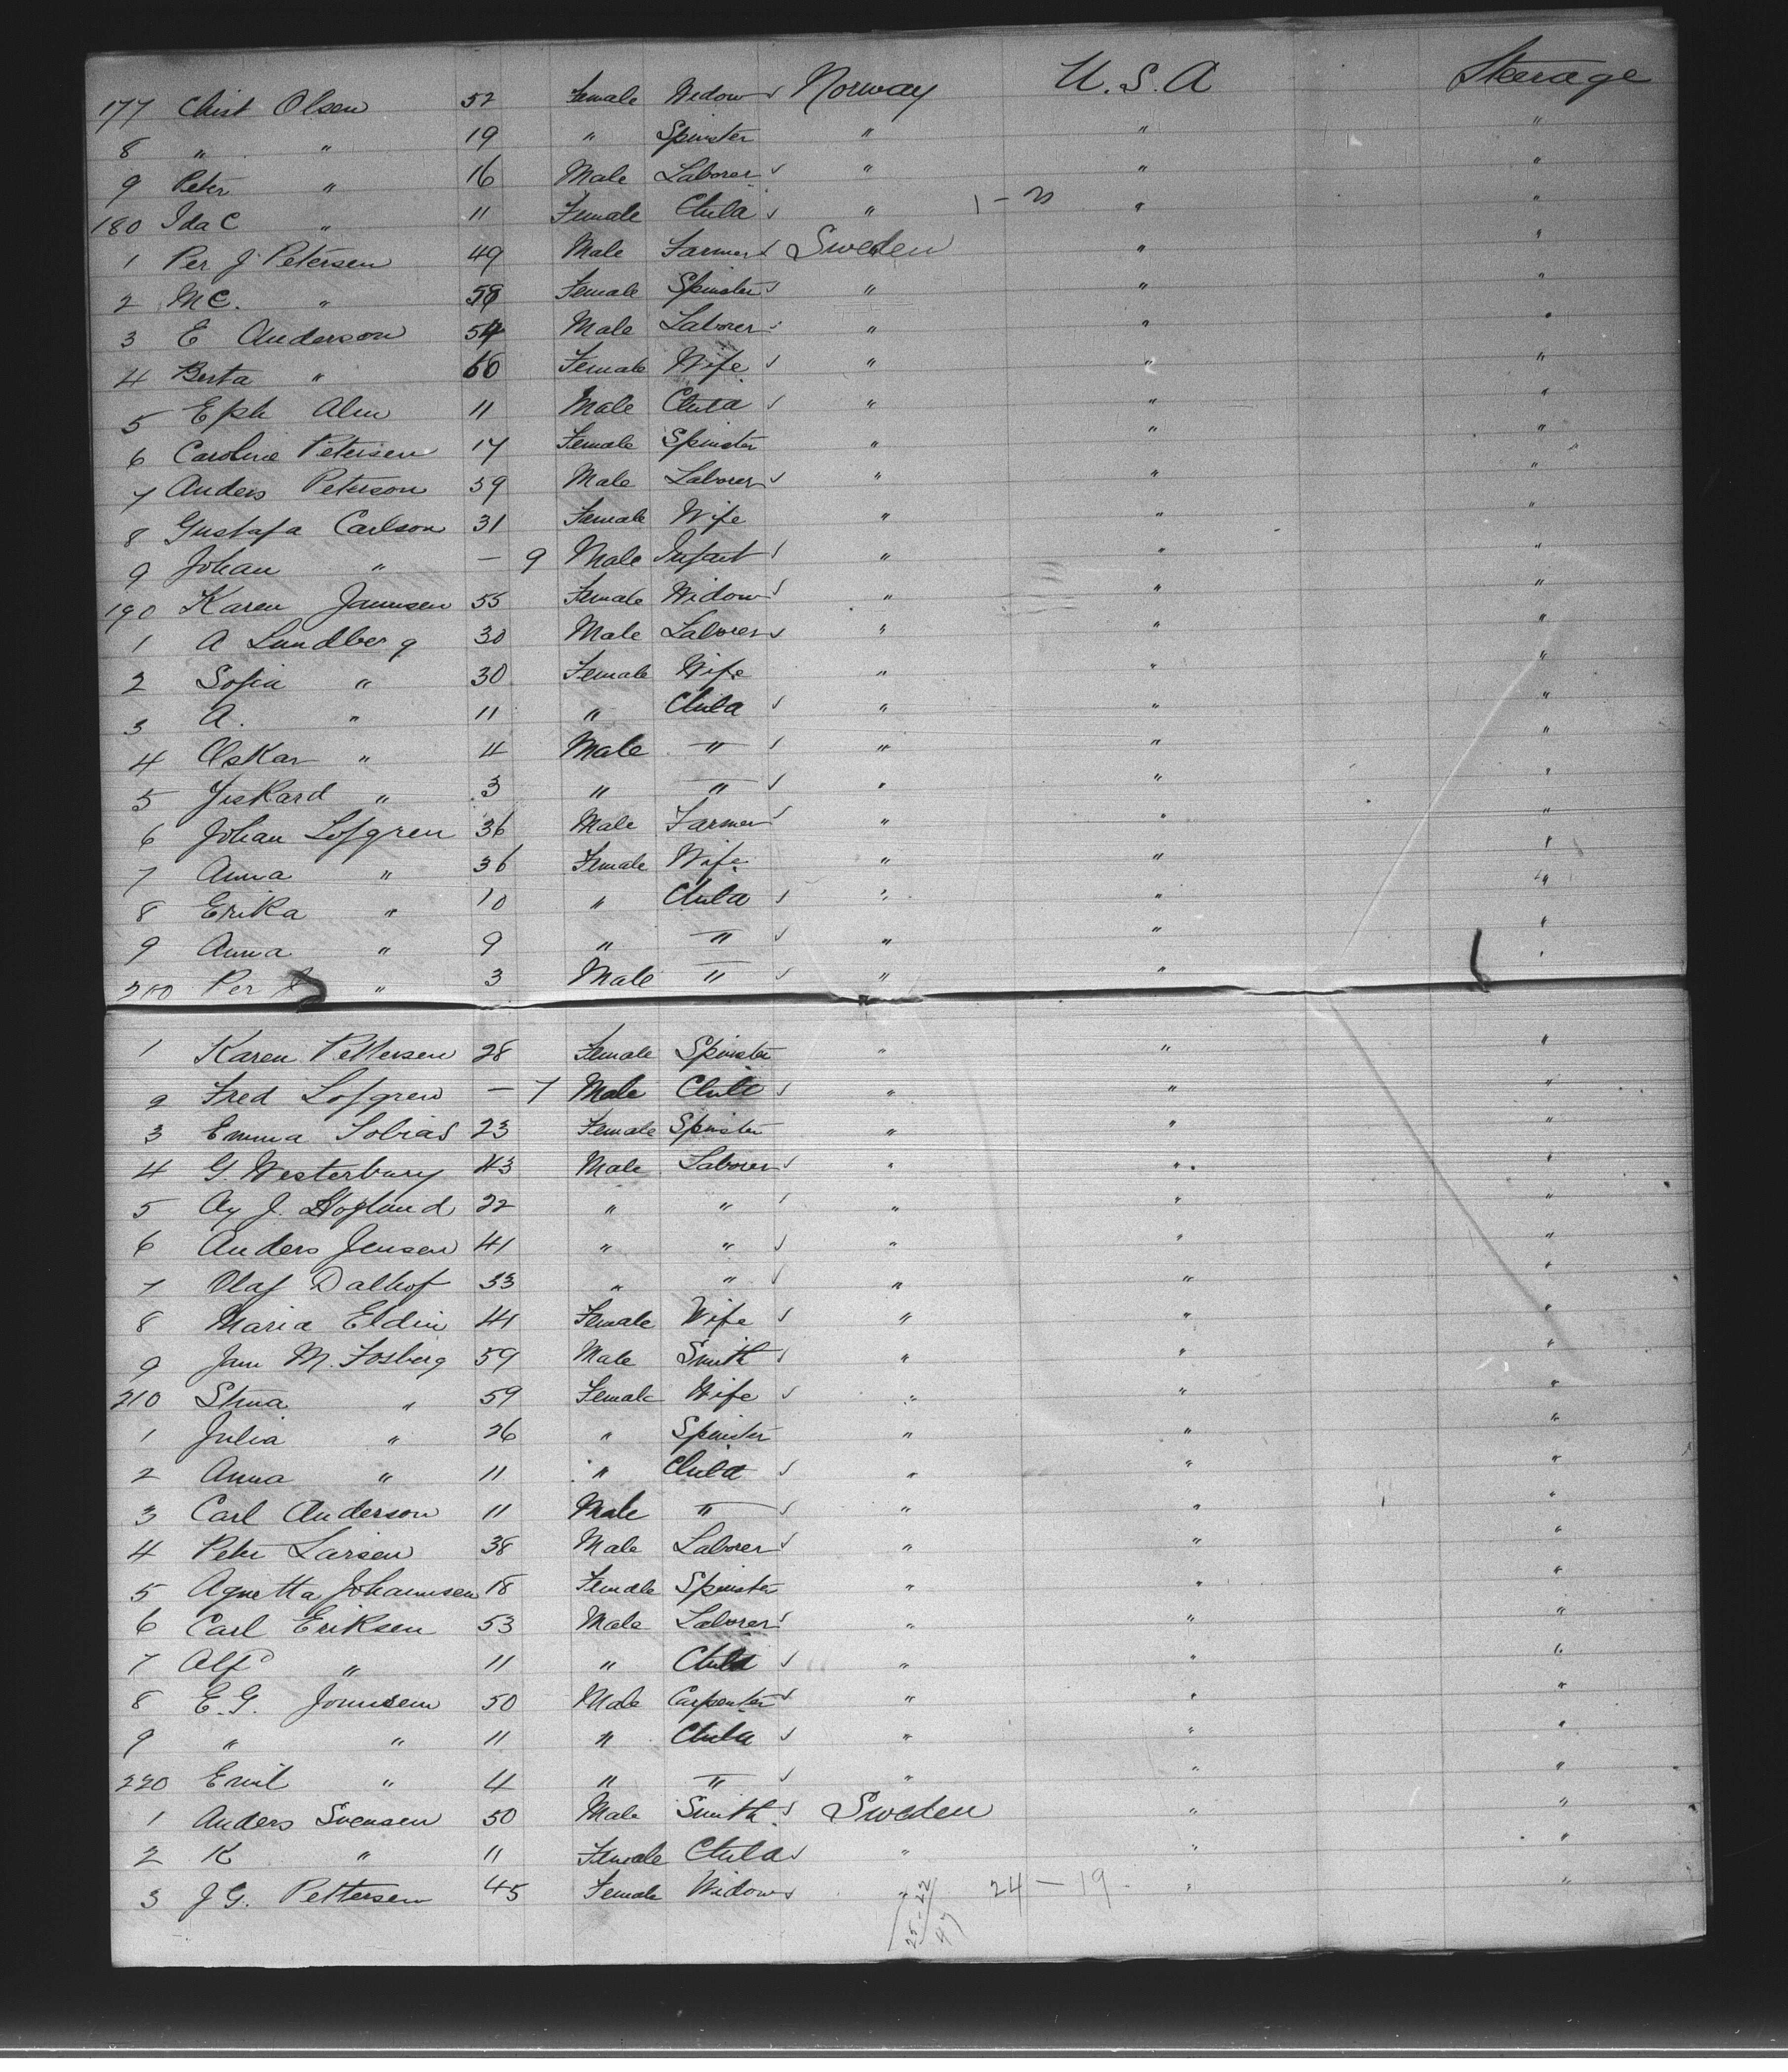 177 Christ Olsen 52 Female Widow Norway U.S.A Steerage
8 " " 19 " Spinster " " "
9 Peter " 16 Male Laborer " " "
180 Ida C " 11 Female Child " 1 - " "
1 Per J Petersen 49 Male Farmer Sweden " "
2 M C. " Female Spinster " " "
3 E Anderson 54 Male Laborer " " "
4 Berta " 60 Female Wife " " "
5 Eph Alm 11 Male Child " " "
6 Caroline Petersen 17 Female Spinster " " "
7 Anders Peterson 39 Male Laborer " " "
8 Gustafa Carlson 31 Female Wife " " "
9 Johan " - 9 Male Infant " " "
190 Karen Jannsen 55 Female Widow " " "
1 A Lundberg 30 Male Laborer " " "
2 Sofia " 30 Female Wife " " "
3 A. " 11 " Child " " "
4 Oskar " 4 Male " " " "
5 " 3 " " " " "
6 Johan Lofgren 36 Male Farmer " " "
7 Anna " 36 Female Wife " " "
8 Erika " 10 " Child " " "
9 Anna " 9 " " " " "
200 Per " 3 Male " " " "
1 Karen Pettersen 28 Female Spinster " " "
2 Fred Lofgren - 7 Male Child " " "
3 Emma Tobias 23 Female Spinster " " "
4 G. Westerbury 43 Male Laborer " " "
5 J. Hoglund 22 " " " " "
6 Anders Jensen 41 " " " " "
7 Olaf Dalhof 33 " " " " "
8 Maria Eldin 41 Female Wife " " "
9 Jam M. Fosberg 59 Male Smith " " "
210 Stina " 59 Female Wife " " "
1 Julia " 26 " Spinster " " "
2 Anna " 11 " Child " " "
3 Carl Anderson 11 Male " " " "
4 Peter Larsen 38 Male Laborer " " "
5 Agnetta Johannsen 18 Female Spinster " " "
6 Carl Eriksen 53 Male Laborer " " "
7 Alf " 11 " Child " " "
8 E. G. Jonnsen 50 Male Carpenter " " "
9 " " 11 " Child " " "
220 Emil " 4 " " " " "
1 Anders Svensen 50 Male Smith Sweden " "
2 K " 11 Female Child " " "
3 J G. Pettersen 45 Female Widow " 24 - 19 " "